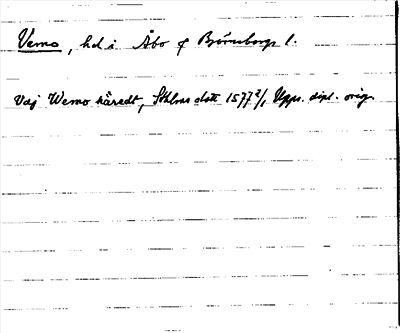 Vemo, hd i Åbo o Björneborgs l.
Vdj Wemo häredt, Sthlms slott 1577 2/1 Upps. dipl. orig.